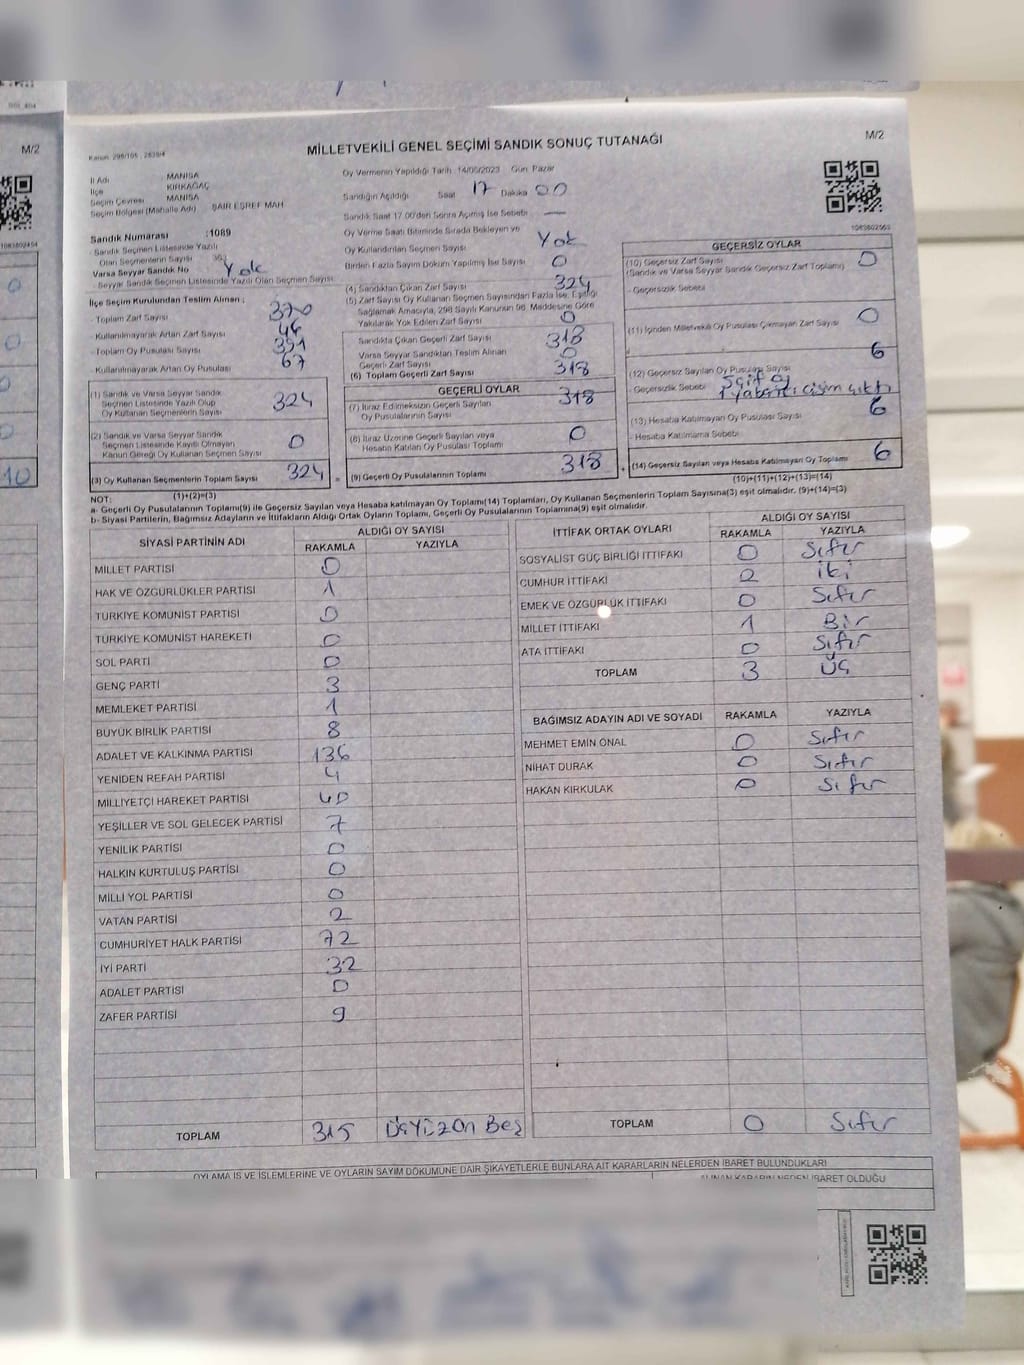 M/2
MİLLETVEKİLİ GENEL SEÇİMİ SANDIK SONUÇ TUTANAĞI
M/2
İl Adı MANİSA
İlçe KIRKAĞAÇ
Seçim Çevresi MANİSA
Seçim Bölgesi (Mahalle Adı) ŞAİR EŞREF MAH
Sandık Numarası :1089
Sandık Seçmen Listesinde Yazılı
Olan Seçmenlerin Sayısı
Varsa Seyyar Sandık No Yok
Seyyar Sandık Seçmen Listesinde Yazılı Olan Seçmen Sayısı
İlçe Seçim Kurulundan Teslim Alınan ;
- Toplam Zarf Sayısı 370
- Kullanılmayarak Artan Zarf Sayısı 46
- Toplam Oy Pusulası Sayısı 391
- Kullanılmayarak Artan Oy Pusulası 67
(1) Sandık ve Varsa Seyyar Sandık
Seçmen Listesinde Yazılı Olup
Oy Kullanan Seçmenlerin Sayısı 324
(2) Sandık ve Varsa Seyyar Sandık
Seçmen Listesinde Kayıtlı Olmayan
Kanun Gereği Oy Kullanan Seçmenlerin Sayısı 0
(3) Oy Kullanan Seçmenlerin Toplam Sayısı 324
Oy Vermenin Yapıldığı Tarih 14/05/2023 Gün Pazar
Sandığın Açıldığı Saat 17 Dakika 00
Sandık Saat 17.00'den Sonra Açılmış İse Sebebi —
Oy Verme Saati Bitiminde Sırada Bekleyen ve
Oy Kullandırılan Seçmen Sayısı Yok
Birden Fazla Sayım Döküm Yapılmış İse Sayısı 0
(4) Sandıktan Çıkan Zarf Sayısı 324
(5) Zarf Sayısı Oy Kullanan Seçmen Sayısından Fazla İse, Eşitliği
Sağlamak Amacıyla, 298 Sayılı Kanunun 98. Maddesine Göre
Yakılarak Yok Edilen Zarf Sayısı 0
Sandıkta Çıkan Geçerli Zarf Sayısı 318
Varsa Seyyar Sandıktan Teslim Alınan
Geçerli Zarf Sayısı 0
(6) Toplam Geçerli Zarf Sayısı 318
GEÇERLİ OYLAR
(7) İtiraz Edilmeksizin Geçerli Sayılan
Oy Pusulalarının Sayısı 318
(8) İtiraz Üzerine Geçerli Sayılan veya
Hesaba Katılan Oy Pusulası Toplamı 0
(9) Geçerli Oy Pusulalarının Toplamı 318
1083802563
GEÇERSİZ OYLAR
(10) Geçersiz Zarf Sayısı 0
(Sandık ve Varsa Seyyar Sandık Geçersiz Zarf Toplamı)
- Geçersizlik Sebebi
(11) İçinden Milletvekili Oy Pusulası Çıkmayan Zarf Sayısı 0
(12) Geçersiz Sayılan Oy Pusulası Sayısı 6
- Geçersizlik Sebebi
(13) Hesaba Katılmayan Oy Pusulası Sayısı 6
- Hesaba Katılmama Sebebi
(14) Geçersiz Sayılan veya Hesaba Katılmayan Oy Toplamı 6
(10)+(11)+(12)+(13)=(14)
NOT: (1)+(2)=(3)
a- Geçerli Oy Pusulalarının Toplamı(9) ile Geçersiz Sayılan veya Hesaba katılmayan Oy Toplamı(14) Toplamları, Oy Kullanan Seçmenlerin Toplam Sayısına(3) eşit olmalıdır. (9)+(14)=(3)
b- Siyasi Partilerin, Bağımsız Adayların ve İttifakların Aldığı Ortak Oyların Toplamı, Geçerli Oy Pusulalarının Toplamına(9) eşit olmalıdır
SİYASİ PARTİNİN ADI ALDIĞI OY SAYISI
RAKAMLA YAZIYLA
MİLLET PARTİSİ 0
HAK VE ÖZGÜRLÜKLER PARTİSİ 1
TÜRKİYE KOMÜNİST PARTİSİ 0
TÜRKİYE KOMÜNİST HAREKETİ 0
SOL PARTİ 0
GENÇ PARTİ 3
MEMLEKET PARTİSİ 1
BÜYÜK BİRLİK PARTİSİ 8
ADALET VE KALKINMA PARTİSİ 136
YENİDEN REFAH PARTİSİ 4
MİLLİYETÇİ HAREKET PARTİSİ 40
YEŞİLLER VE SOL GELECEK PARTİSİ 7
YENİLİK PARTİSİ 0
HALKIN KURTULUŞ PARTİSİ 0
MİLLİ YOL PARTİSİ 0
VATAN PARTİSİ 2
CUMHURİYET HALK PARTİSİ 72
İYİ PARTİ 32
ADALET PARTİSİ 0
ZAFER PARTİSİ 9
TOPLAM 315 ÜçYüzOn Beş
İTTİFAK ORTAK OYLARI ALDIĞI OY SAYISI
RAKAMLA YAZIYLA
SOSYALİST GÜÇ BİRLİĞİ İTTİFAKI 0 Sıfır
CUMHUR İTTİFAKI 2 İki
EMEK VE ÖZGÜRLÜK İTTİFAKI 0 Sıfır
MİLLET İTTİFAKI 1 Bir
ATA İTTİFAKI 0 Sıfır
TOPLAM 3 ÜÇ
BAĞIMSIZ ADAYIN ADI VE SOYADI RAKAMLA YAZIYLA
MEHMET EMİN ÖNAL 0 Sıfır
NİHAT DURAK 0 Sıfır
HAKAN KIRKULAK 0 Sıfır
TOPLAM 0 Sıfır
OYLAMA İŞ VE İŞLEMLERİNE VE OYLARIN SAYIM DÖKÜMÜNE DAİR ŞİKAYETLERLE BUNLARA AİT KARARLARIN NELERDEN İBARET BULUNDUKLARI